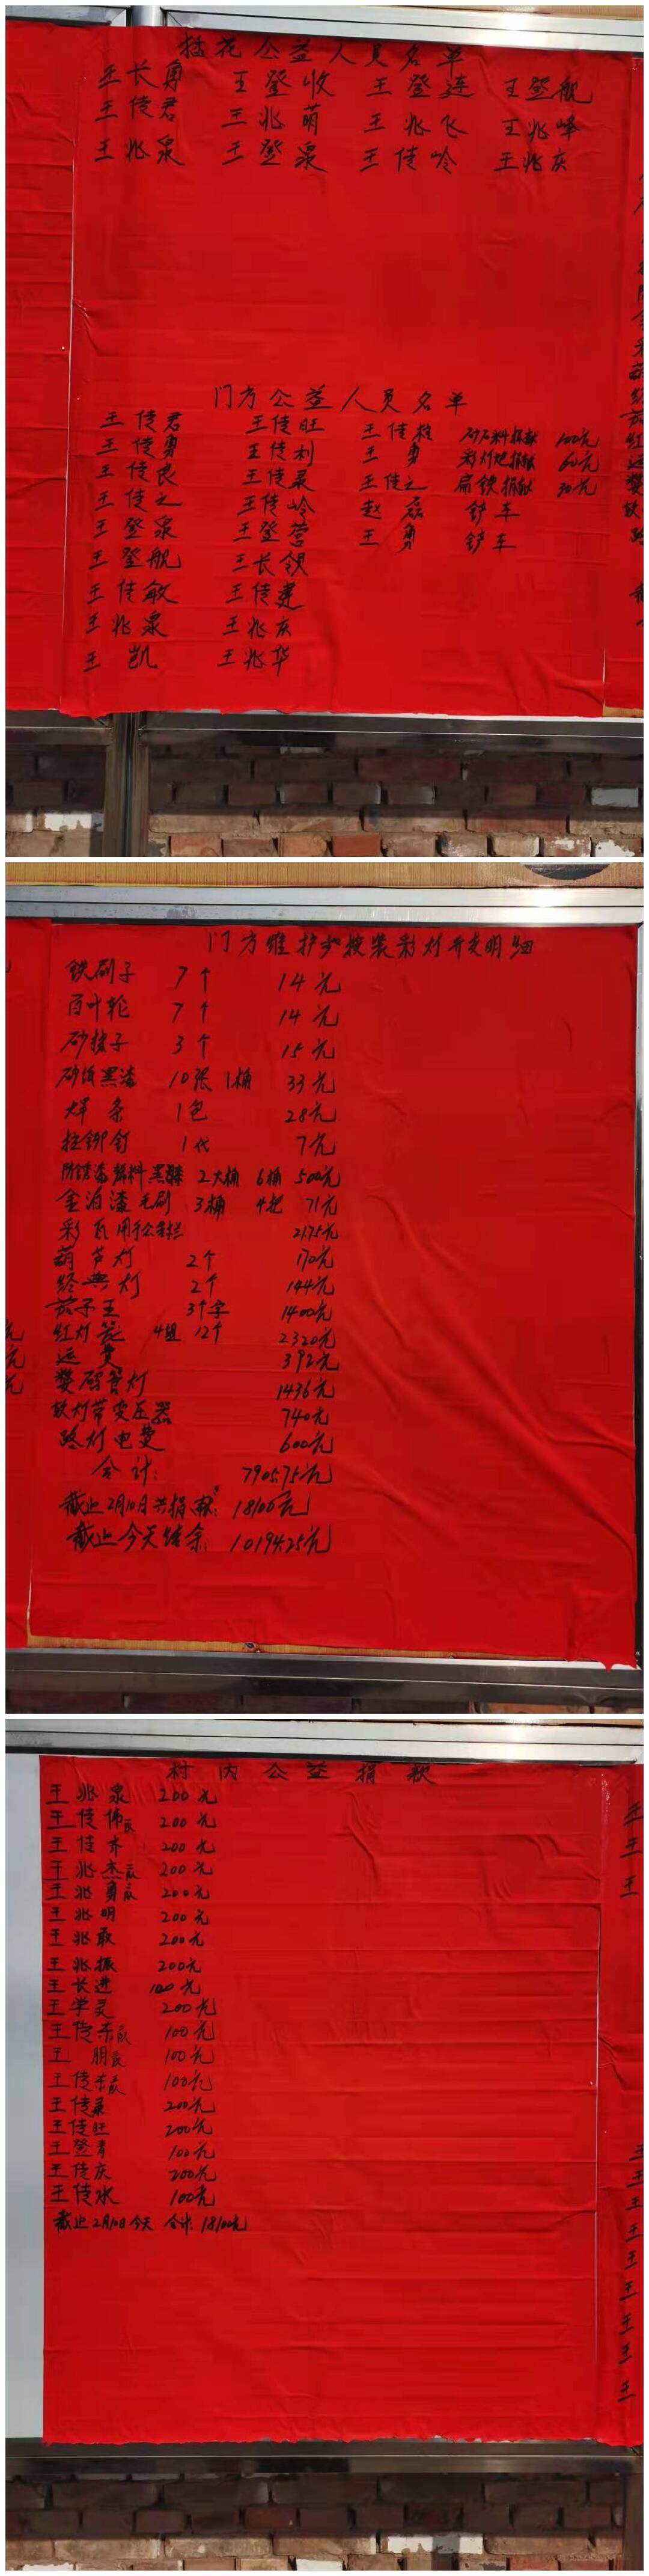 挂花公益人员名单
王长勇 王登收 王登连 王登舰
王传君 王兆萌 王兆飞 王兆峰
王兆泉 王登泉 王传岭 王兆庆
门方公益人员名单
王传君 王传旺 王传柱 砂石料捐献 100元
王传勇 王传利 王勇 彩灯把捐献 60元
王传良 王传录 王传之 扁铁捐献 30元
王传之 王传岭 赵磊 铲车
王登泉 王登营 王勇 铲车
王登舰 王长领
王传敏 王传建
王兆泉 王兆庆
王凯 王兆华
门方维护和按装彩灯开支明细
铁刷子 7个 14元
百叶轮 7个 14元
砂接子 3个 15元
砂纸黑漆 10张 1桶 33元
焊条 1包 28元
拉铆钉 1代 7元
防锈漆稀料黑漆 2大桶 6桶 500元
金泊漆毛刷 3桶 4把 71元
彩瓦用于公示栏 21.75元
葫芦灯 2个 170元
经典灯 2个 144元
茄子王 3个字 1400元
红灯笼 4组 12个 2320元
运费 392元
管灯 1436元
软灯带变压器 740元
路灯电费 600元
合计: 7905.75元
截止2月10日共捐献: 18100元
截止今天结余: 10194.25元
村内公益捐款
王兆泉 200元
王传伟 200元
王传齐 200元
王兆杰 200元
王兆勇 200元
王兆明 200元
王兆敢 200元
王兆振 200元
王长进 100元
王学灵 200元
王传东 100元
王朋 100元
王传东 100元
王传录 200元
王传旺 200元
王登青 100元
王传庆 200元
王传水 100元
截止2月10日今天 合计: 18100元